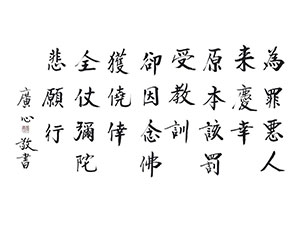 為罪惡人
来慶幸
原本該罰
受教訓
卻因念佛
獲僥倖
全仗彌陀
悲願行
廣心敬書